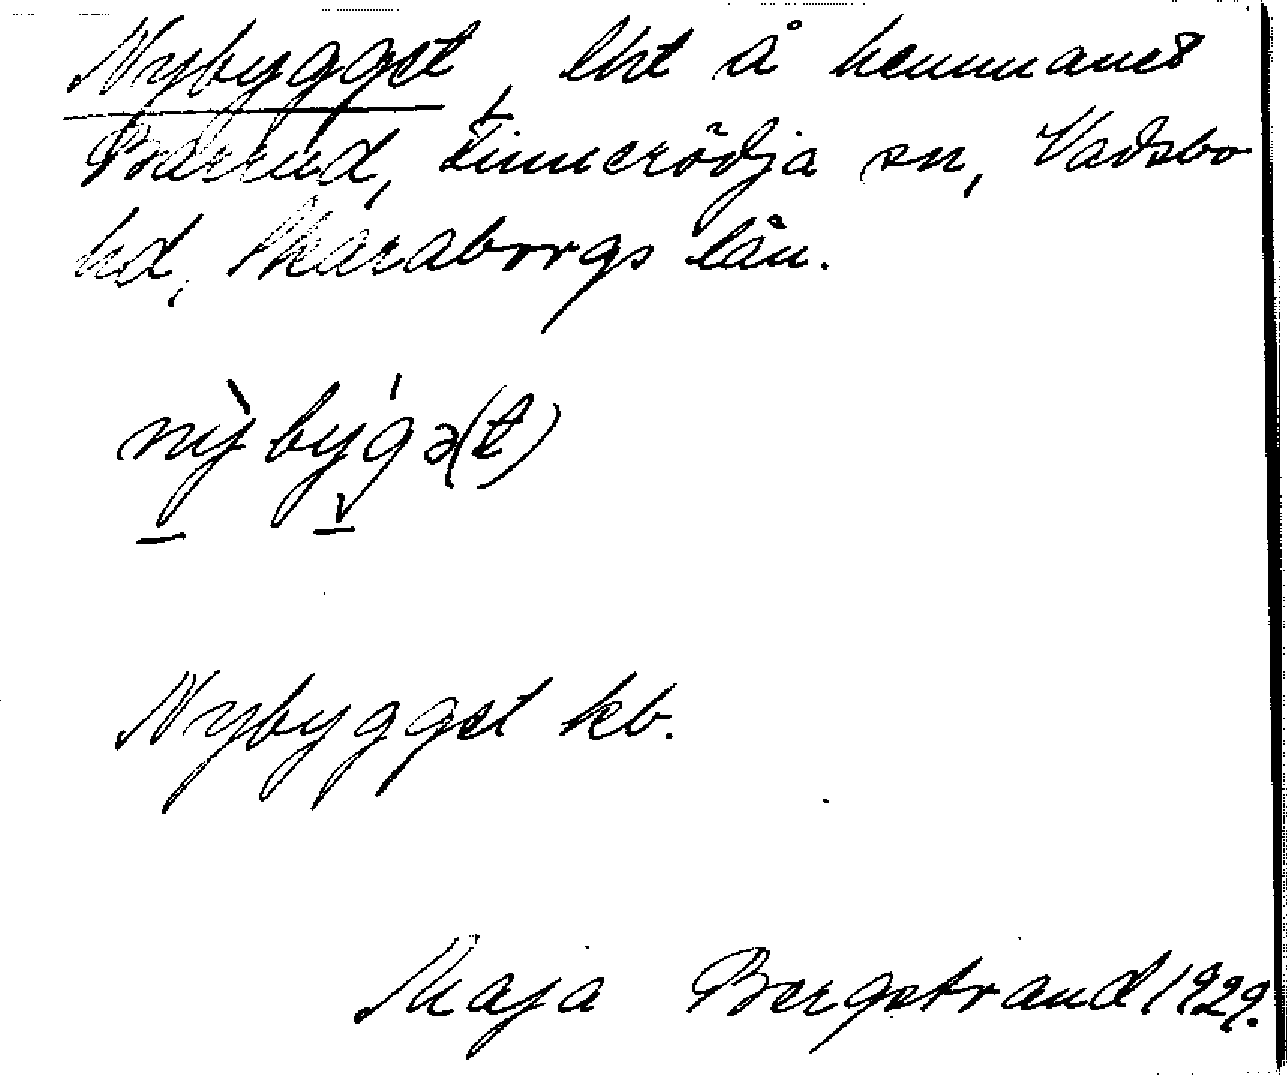 Nybygget, lht å hemmanet
Finnerödja sn, Vadsbo
hd, Skaraborgs län.
nỳbýgə(t)
Nybygget kb.
Maja Bergstrand 1929.